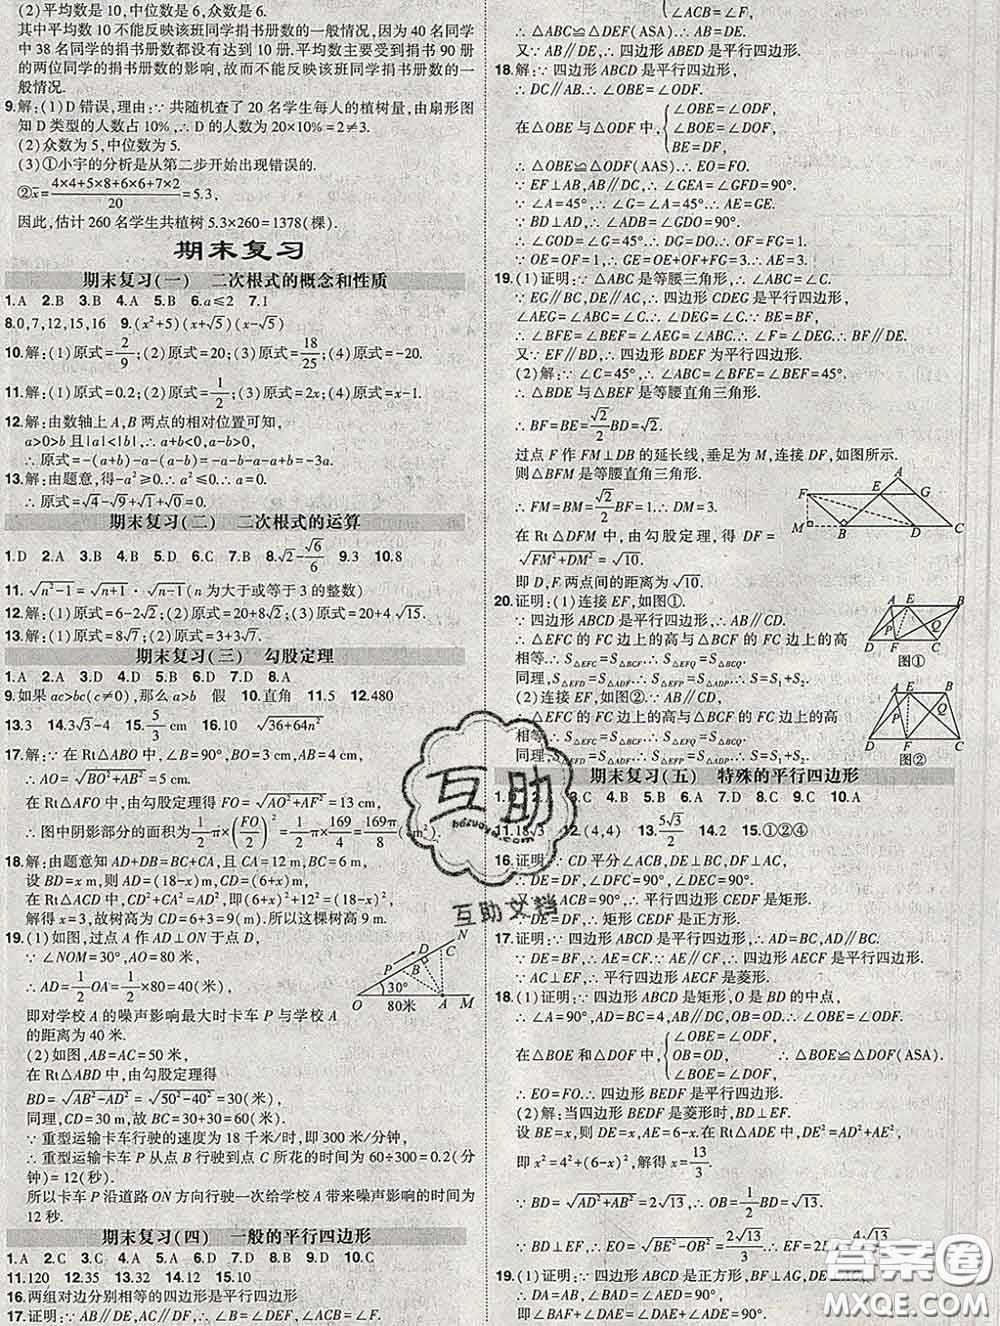 (2)平均数是 10,中位数是 6,众数是 6.
其中平均数 10 不能反映该班同学捐书册数的一般情况,因为 40 名同学
中 38 名同学的捐书册数没有达到 10 册.平均数主要受到捐书 90 册
的两位同学的捐书册数的影响,故而不能反映该班同学捐书册数的一
般情况.
9.解:(1)D 错误,理由:∵共随机查了 20 名学生每人的植树量,由扇形图
知 D 类型的人数占 10%,∴D 的人数为 20×10%=2≠3.
(2)众数为 5,中位数为 5.
(3)①小宇的分析是从第二步开始出现错误的.
②x̄=(4×4+5×8+6×6+7×2)/20=5.3,
因此,估计 260 名学生共植树 5.3×260=1378(棵).
期末复习
期末复习(一) 二次根式的概念和性质
1.A 2.B 3.B 4.A 5.B 6.a≤2 7.1
8.0,7,12,15,16 9.(x²+5)(x+√5)(x-√5)
10.解:(1)原式=2/9;(2)原式=20;(3)原式=18/25;(4)原式=-20.
11.解:(1)原式=0.2;(2)原式=1/2;(3)原式=2x;(4)原式=x-1.
12.解:由数轴上 A,B 两点的相对位置可知,
a>0>b 且|a|<|b|,∴a+b<0,a-b>0;
∴原式=-(a+b)-a-(a-b)=-a-b-a-a+b=-3a.
13.解:由题意,得-a²≥0.∴a²≤0.∴a=0.
∴原式=√4-√9+√1+√0=0.
期末复习(二) 二次根式的运算
1.D 2.A 3.B 4.B 5.D 6.C 7.B 8.√2-√6/6 9.3 10.8
11.√(n²-1)=√(n+1)·√(n-1)(n 为大于或等于 3 的整数)
12.解:(1)原式=6-2√2;(2)原式=20+8√2;(3)原式=20+4√15.
13.解:(1)原式=8√7;(2)原式=3+3√7.
期末复习(三) 勾股定理
1.A 2.C 3.A 4.C 5.D 6.D 7.D 8.A
9.如果 ac>bc(c≠0),那么 a>b 假 10.直角 11.5 12.480
13.3 14.3√3-4 15.5/3 cm 16.10 √(36+64n²)
17.解:∵在 Rt△ABO 中,∠B=90°,BO=3 cm,AB=4 cm,
∴AO=√(BO²+AB²)=5 cm.
在 Rt△AFO 中,由勾股定理得 FO=√(AO²+AF²)=13 cm,
∴图中阴影部分的面积为1/2π×(FO/2)²=1/2π×169/4=169/8π(cm²).
18.解:由题意知 AD+DB=BC+CA,且 CA=12 m,BC=6 m,
设 BD=x m,则 AD=(18-x)m,CD=(6+x)m,
在 Rt△ACD 中,CD²+CA²=AD²,即(6+x)²+12²=(18-x)²,
解得 x=3.故树高为 CD=6+3=9(m).所以这棵树高 9 m.
19.(1)如图,过点 A 作 AD⊥ON 于点 D,
∵∠NOM=30°,AO=80 米,
∴AD=1/2OA=1/2×80=40(米),
即对学校 A 的噪声影响最大时卡车 P 与学校 A
的距离为 40 米.
(2)如图,AB=AC=50 米,
在 Rt△ABD 中,由勾股定理得
BD=√(AB²-AD²)=√(50²-40²)=30(米),
同理,CD=30 米,故 BC=30+30=60(米).
∵重型运输卡车行驶的速度为 18 千米/时,即 300 米/分,
∴重型运输卡车 P 从点 B 行驶到点 C 所花的时间为 60÷300=0.2(分
钟)=12(秒).
所以卡车 P 沿道路 ON 方向行驶一次给学校 A 带来噪声影响的时间为
12 秒.
N
D
C
P
B
30°
O 80米 A M
期末复习(四) 一般的平行四边形
1.A 2.C 3.A 4.C 5.A 6.D 7.D 8.D 9.D 10.C
11.120 12.35 13.12 14.15 15.10
16.两组对边分别相等的四边形是平行四边形
17.证明:∵AB∥DE,AC∥DF,∴∠B=∠DEF,∠ACB=∠F.
∠ACB=∠F,
∴△ABC≌△DEF(ASA).∴AB=DE.
又∵AB∥DE,∴四边形 ABED 是平行四边形.
18.解:∵四边形 ABCD 是平行四边形,
∴DC∥AB.∴∠OBE=∠ODF.
在△OBE 与△ODF 中,{∠OBE=∠ODF, ∠OEB=∠OFD, BE=DF,
∴△OBE≌△ODF(AAS).∴EO=FO.
∵EF⊥AB,AB∥DC,∴∠GEA=∠GFD=90°.
∵∠A=45°,∴∠G=∠A=45°.∴AE=GE.
∵BD⊥AD,∴∠ADB=∠GDO=90°.
∴∠GOD=∠G=45°.∴DG=DO.
∴OF=FG=1.∴GE=OE+OF+FG=3.∴AE=3.
19.(1)证明:∵△ABC 是等腰三角形,∴∠ABC=∠C.
∵EG∥BC,DE∥AC,∴四边形 CDEG 是平行四边形,
∠AEG=∠ABC=∠C.∴∠DEG=∠C.∵BE=BF,
∴∠BFE=∠BEF=∠AEG=∠ABC.∴∠F=∠DEG.∴BF∥DE.
又∵EF∥BD,∴四边形 BDEF 为平行四边形.
(2)解:∵∠C=45°,∴∠ABC=∠BFE=∠BEF=45°.
∴△BDE 与△BEF 是等腰直角三角形.
∴BF=BE=√2/2BD=√2.
过点 F 作 FM⊥DB 的延长线,垂足为 M,连接 DF,如图所示.
则△BFM 是等腰直角三角形.
∴FM=BM=√2/2BF=1.∴DM=3.
在 Rt△DFM 中,由勾股定理,得 DF=
√(FM²+DM²)=√10.
即 D,F 两点间的距离为√10.
A
F E G
M B D C
20.证明:(1)连接 EF,如图①.
∵四边形 ABCD 是平行四边形,∴AB∥CD.
∴△EFC 的 FC 边上的高与△BCF 的 FC 边上的高
相等.∴S△EFC=S△BCF.∴S△EFQ=S△BCQ.
同理,S△EFD=S△ADF.∴S△EFP=S△ADP.∴S=S₁+S₂.
(2)连接 EF,如图②.∵AB∥CD,
∴△EFC 的 FC 边上的高与△BCF 的 FC 边上的高
相等.∴S△EFC=S△BCF.∴S△EFQ=S△BCQ.
同理,S△EFD=S△ADF.∴S△EFP=S△ADP.∴S=S₁+S₂.
A E B
P Q
D F C
图①
A E B
P Q
D F C
图②
期末复习(五) 特殊的平行四边形
1.D 3.C 4.B 5.A 6.B 7.D 8.B 9.C 10.A
11.18√3 12.(4,4) 13.5√3/2 14.2 15.①②④
16.证明:∵CD 平分∠ACB,DE⊥BC,DF⊥AC,
∴DE=DF,∠DFC=90°,∠DEC=90°.
又∵∠ACB=90°,∴四边形 CEDF 是矩形.
∵DE=DF,∴矩形 CEDF 是正方形.
17.证明:∵四边形 ABCD 是平行四边形,∴AD=BC,AD∥BC.
∵DE=BF,∴AE=CF.∵AE∥CF,∴四边形 AECF 是平行四边形.
∵AC⊥EF,∴平行四边形 AECF 是菱形.
18.(1)证明:∵四边形 ABCD 是矩形,O 是 BD 的中点,
∴∠A=90°,AD=BC=4,AB∥DC,OB=OD.∴∠OBE=∠ODF.
在△BOE 和△DOF 中,{∠OBE=∠ODF, OB=OD, ∠BOE=∠DOF, ∴△BOE≌△DOF(ASA).
∴EO=FO.∴四边形 BEDF 是平行四边形.
(2)解:当四边形 BEDF 是菱形时,BD⊥EF,
设 BE=x,则 DE=x,AE=6-x.在 Rt△ADE 中,DE²=AD²+AE²,
即 x²=4²+(6-x)²,解得 x=13/3.
∵BD=√(AD²+AB²)=2√13,∴OB=1/2BD=√13.
∵BD⊥EF,∴EO=√(BE²-OB²)=2√13/3.∴EF=2EO=
19.(1)证明:∵四边形 ABCD 是正方形,BF⊥AG,DE⊥AG,
∴DA=AB,∠BAF+∠DAE=90°,
即∠BAF+∠DAE=∠DAE+∠ADE=90°.
互助
hezuoye.com
互助文档
答案圈
MXQE.COM